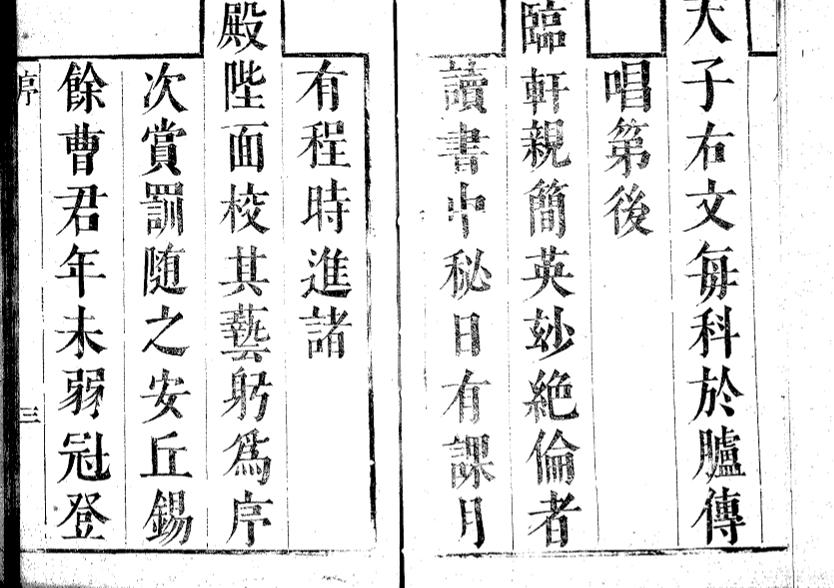 天子右文每科於臚傳
唱第後
臨軒親簡英妙絶倫者
讀書中秘日有課月
有程時進諸
殿陛面校其藝躬為序
次賞罰随之安丘錫
餘曹君年未弱冠登
序
三